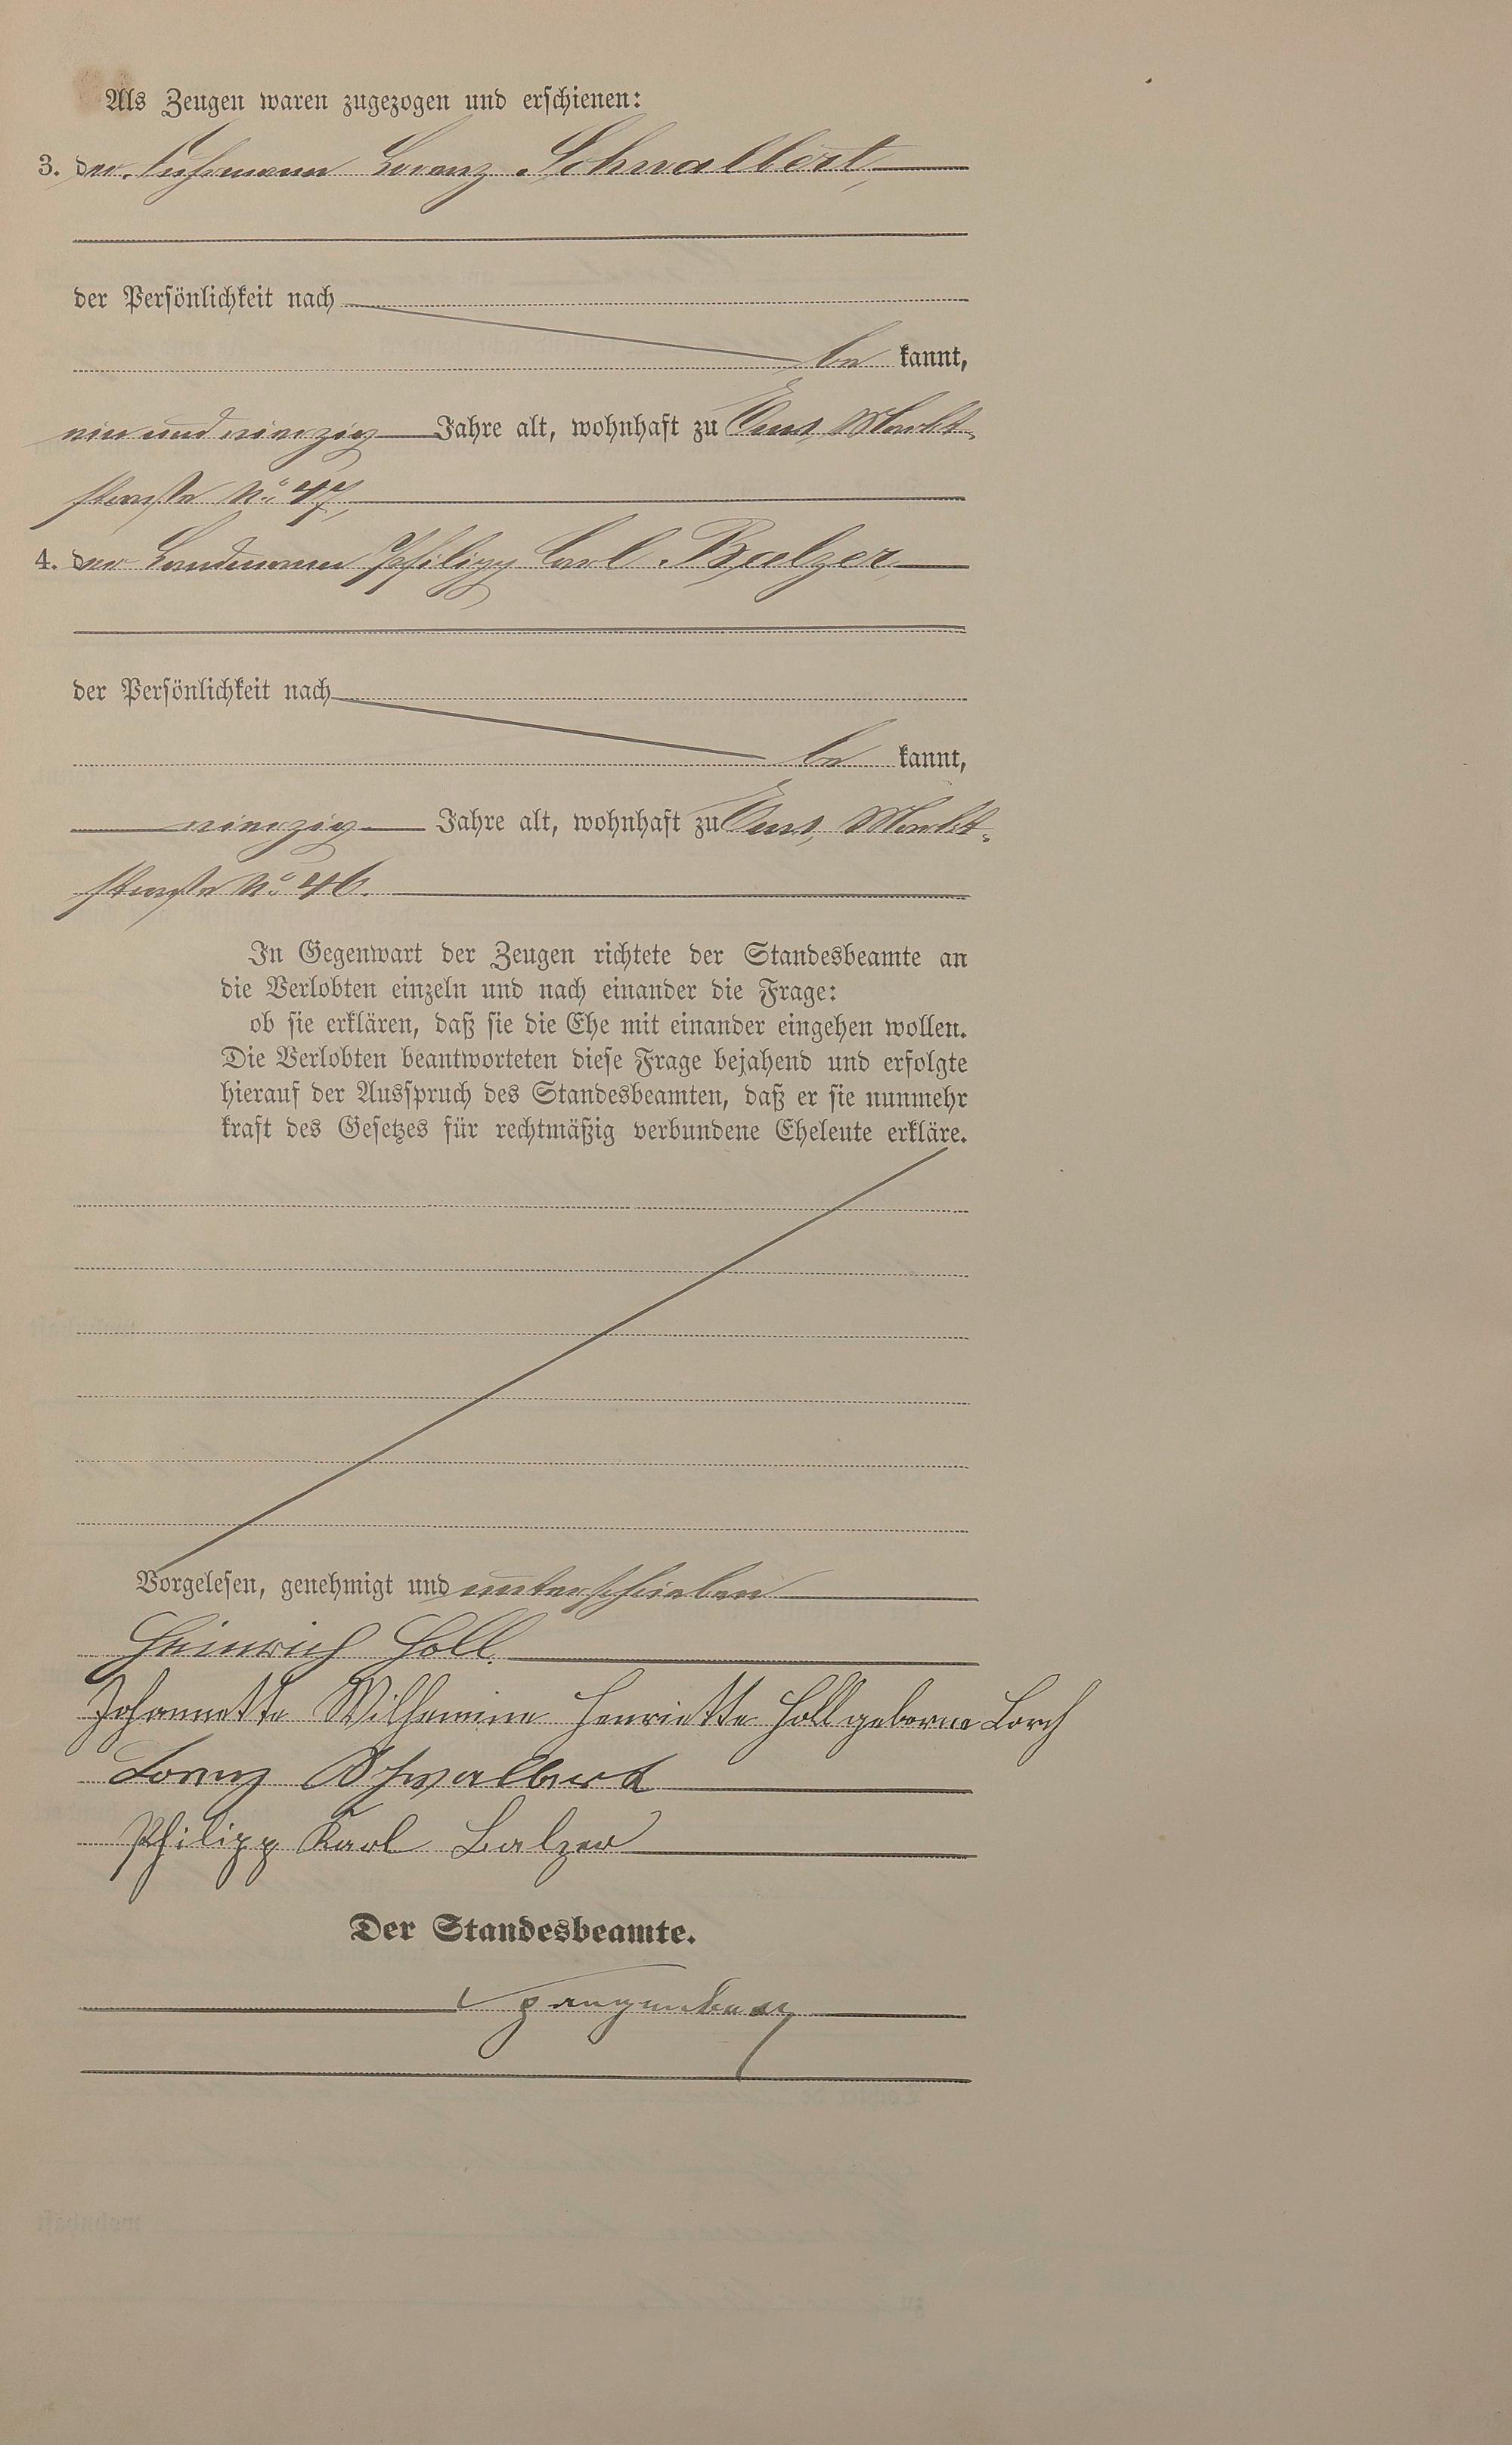 Als Zeugen waren zugezogen und erschienen:
3. der Fuhrmann Lorenz Schwalbert,
der Persönlichkeit nach
be kannt,
ein und vierzig Jahre alt, wohnhaft zu Ems, Markt-
straße No. 47,
4. der Landmann Philipp Carl Balzer,
der Persönlichkeit nach
be kannt,
vierzig Jahre alt, wohnhaft zu Ems, Markt-
straße No. 46.
In Gegenwart der Zeugen richtete der Standesbeamte an
die Verlobten einzeln und nach einander die Frage:
ob sie erklären, daß sie die Ehe mit einander eingehen wollen.
Die Verlobten beantworteten diese Frage bejahend und erfolgte
hierauf der Ausspruch des Standesbeamten, daß er sie nunmehr
kraft des Gesetzes für rechtmäßig verbundene Eheleute erkläre.
Vorgelesen, genehmigt und unterschrieben
Heinrich Holl.
Johannette Wilhemine Henriette Holl geborne Lorch
Lorenz Schwalbert
Philipp Karl Balzer
Der Standesbeamte.